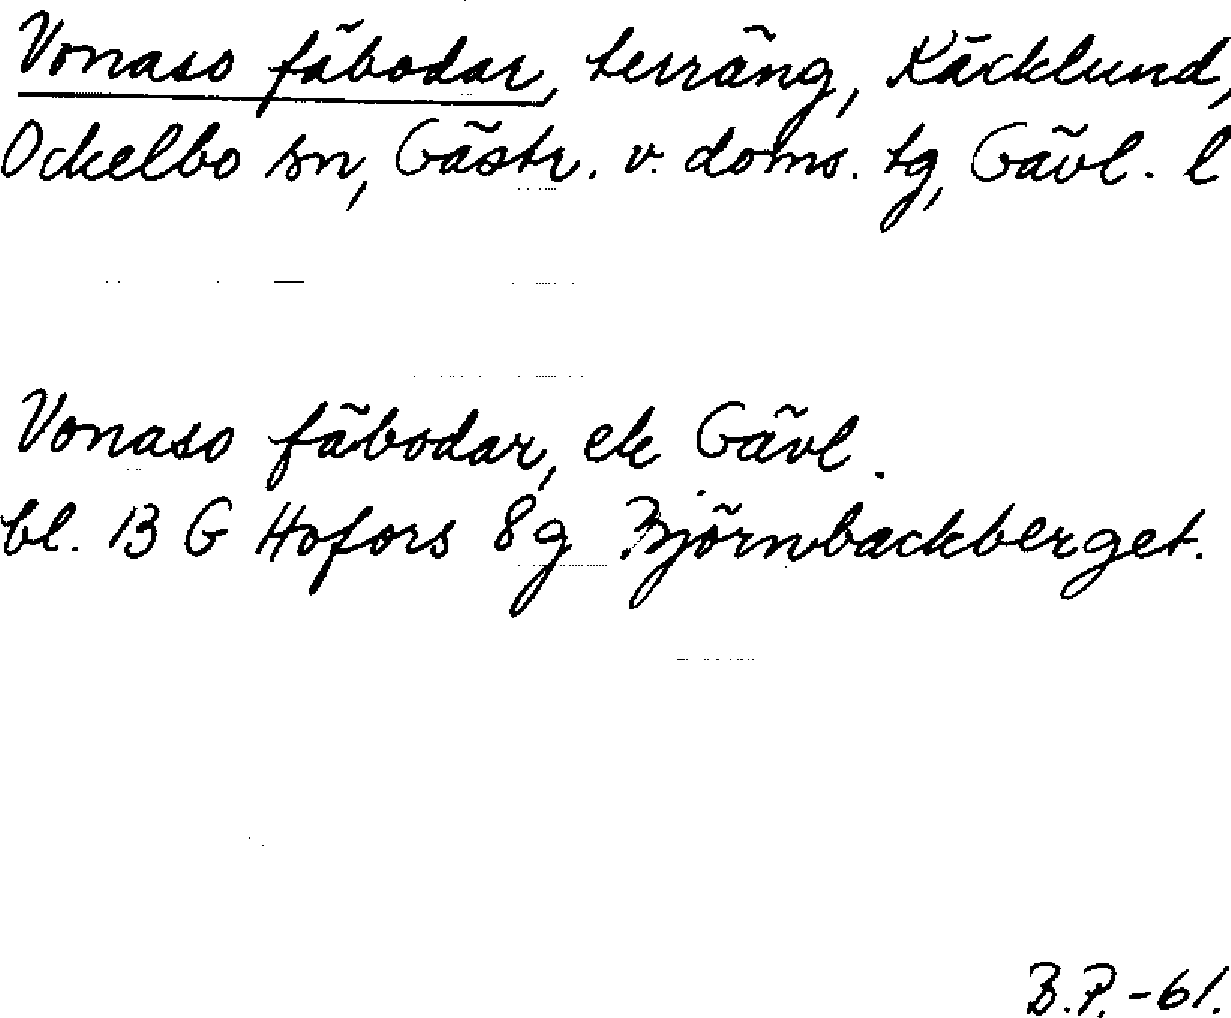 Vonaso fäbodar, terräng, Käcklund,
Ockelbo sn, Gästr. v. doms. tg, Gävl. l
Vonaso fäbodar, ek Gävl.
bl. 13 G Hofors 8g Björnbackberget.
B.P. -61.